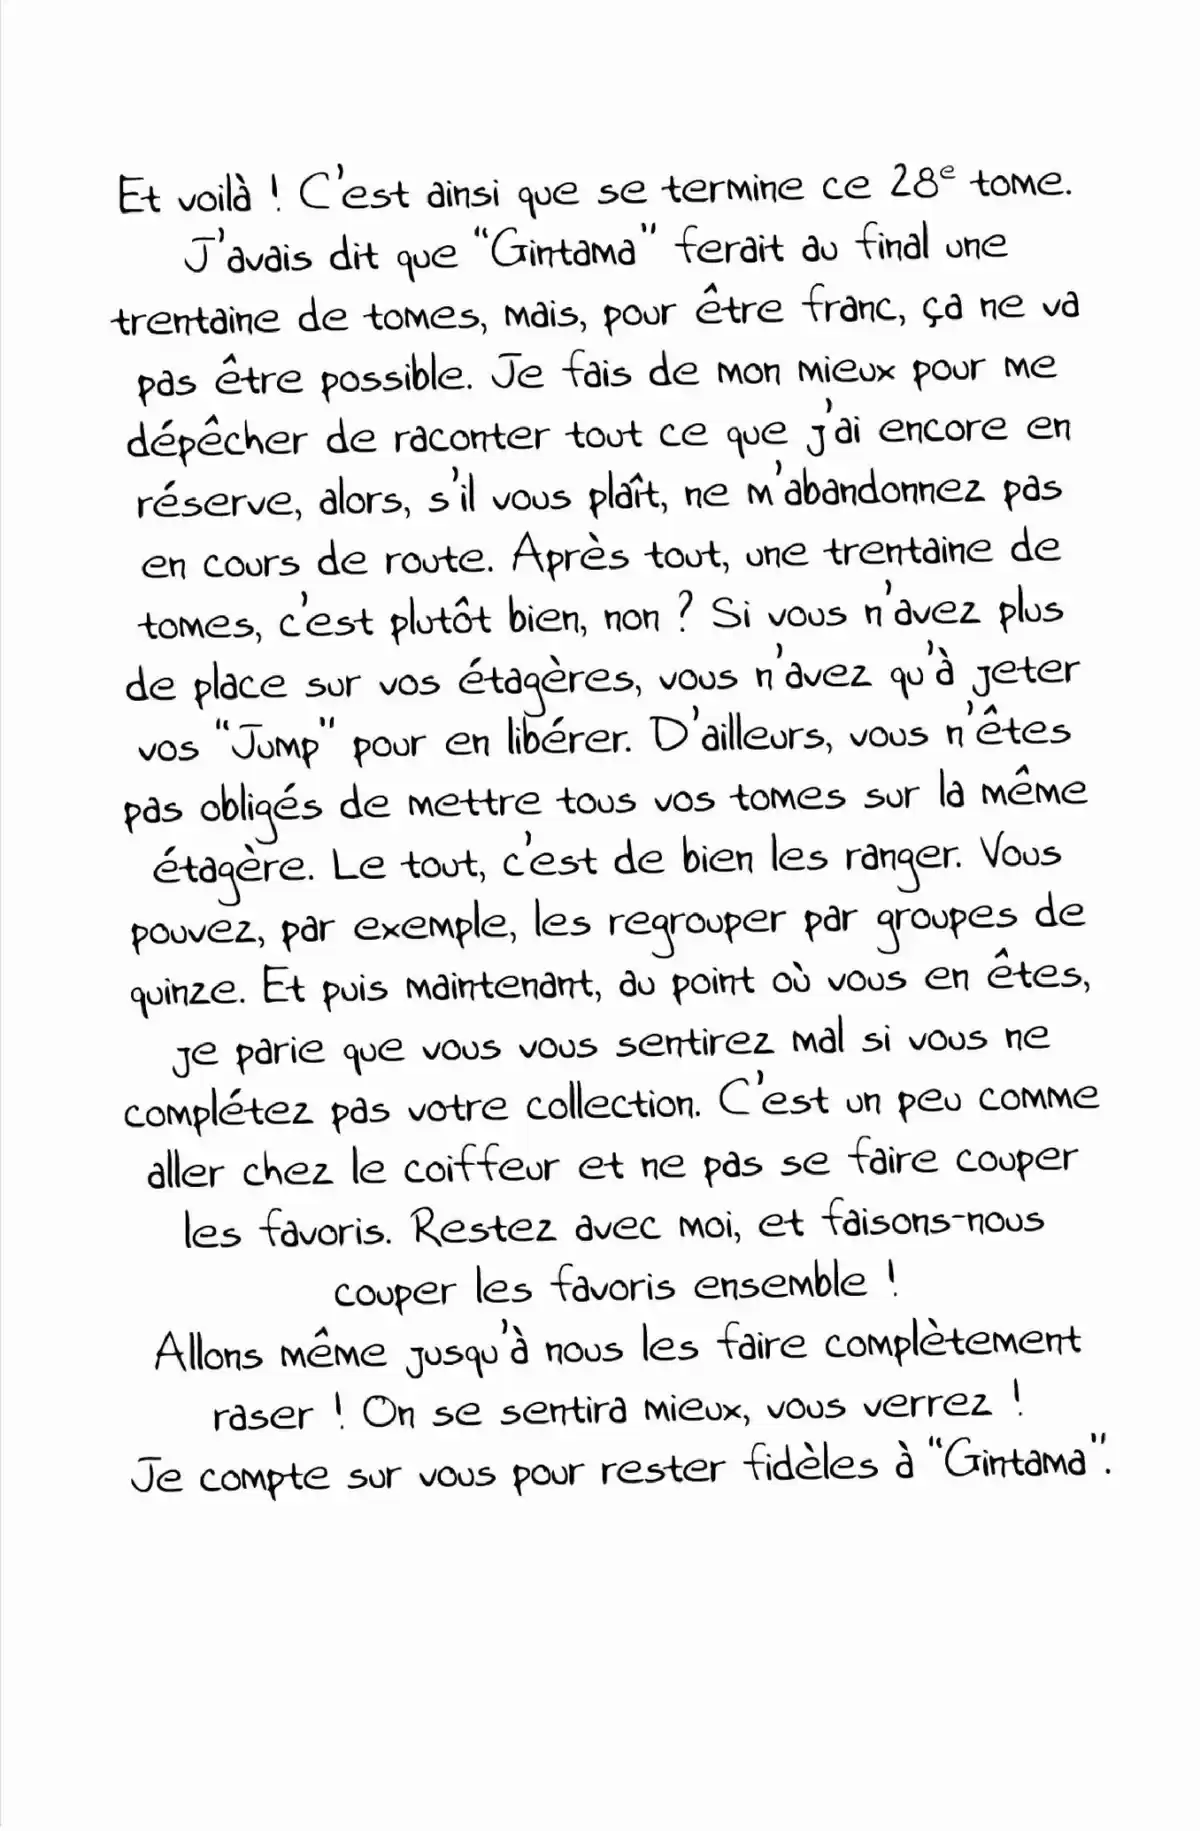 Et voilà ! C'est ainsi que se termine ce 28e tome.
J'avais dit que "Gintama" ferait au final une
trentaine de tomes, mais, pour être franc, ça ne va
pas être possible. Je fais de mon mieux pour me
dépêcher de raconter tout ce que j'ai encore en
réserve, alors, s'il vous plaît, ne m'abandonnez pas
en cours de route. Après tout, une trentaine de
tomes, c'est plutôt bien, non ? Si vous n'avez plus
de place sur vos étagères, vous n'avez qu'à jeter
vos "Jump" pour en libérer. D'ailleurs, vous n'êtes
pas obligés de mettre tous vos tomes sur la même
étagère. Le tout, c'est de bien les ranger. Vous
pouvez, par exemple, les regrouper par groupes de
quinze. Et puis maintenant, au point où vous en êtes,
je parie que vous vous sentirez mal si vous ne
complétez pas votre collection. C'est un peu comme
aller chez le coiffeur et ne pas se faire couper
les favoris. Restez avec moi, et faisons-nous
couper les favoris ensemble !
Allons même jusqu'à nous les faire complètement
raser ! On se sentira mieux, vous verrez !
Je compte sur vous pour rester fidèles à "Gintama".